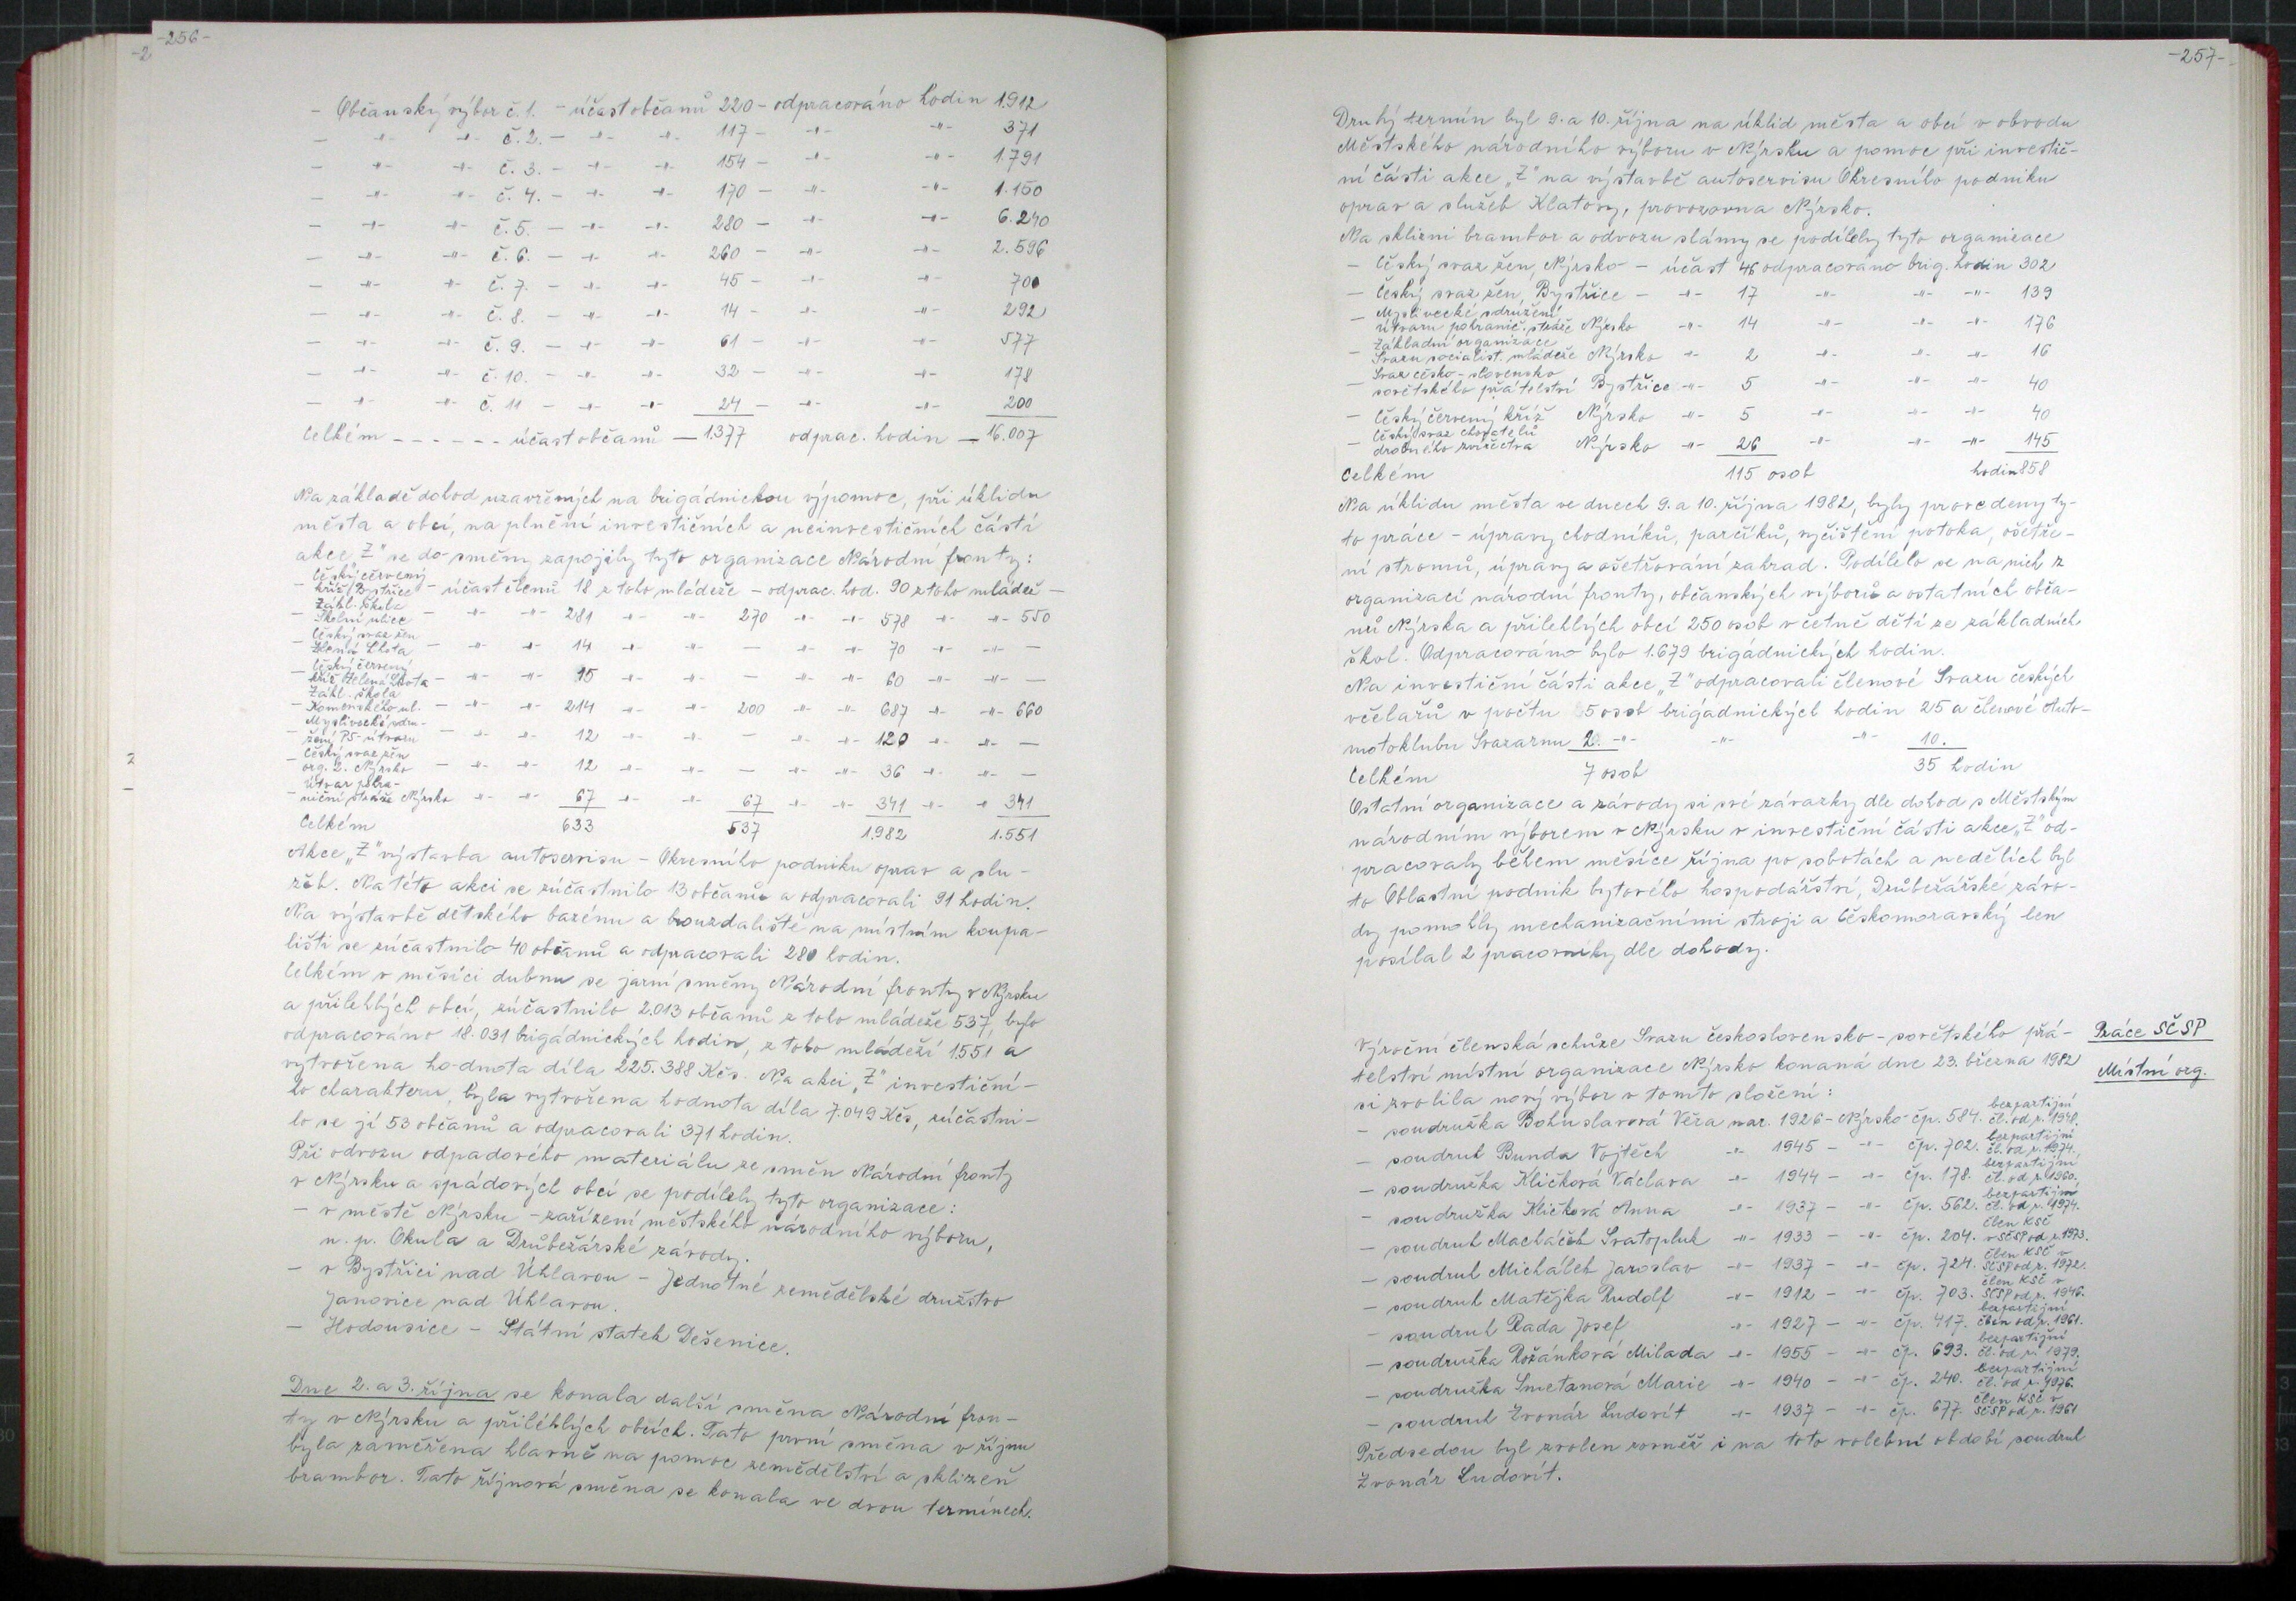 -256-
- Občanský výbor č. 1. - účast občanů 220 - odpracováno hodin 1.912
- -"- -"- č. 2. - -"- -"- 117 - -"- -"- 371
- -"- -"- č. 3. - -"- -"- 154 - -"- -"- 1.791
- -"- -"- č. 4. - -"- -"- 170 - -"- -"- 1.150
- -"- -"- č. 5. - -"- -"- 280 - -"- -"- 6.240
- -"- -"- č. 6. - -"- -"- 260 - -"- -"- 2.596
- -"- -"- č. 7. - -"- -"- 45 - -"- -"- 700
- -"- -"- č. 8. - -"- -"- 14 - -"- -"- 292
- -"- -"- č. 9. - -"- -"- 61 - -"- -"- 577
- -"- -"- č. 10. - -"- -"- 32 - -"- -"- 178
- -"- -"- č. 11 - -"- -"- 24 - -"- -"- 200
Celkém - - - - - - účast občanů - 1.377 odprac. hodin - 16.007
Na základě dohod uzavřených na brigádnickou výpomoc, při úklidu
města a obcí, na plnění investičních a neinvestičních částí
akce „Z" se do směny zapojily tyto organizace Národní fronty:
- Český červený
kříž Bystřice - účast členů 18 z toho mládeže - odprac. hod. 90 z toho mládež -
Zákl. škola
- Školní ulice - -"- -"- 281 -"- -"- 270 -"- -"- 578 -"- -"- 550
Český svaz žen
- Zelená Lhota - -"- -"- 14 -"- -"- - -"- -"- 70 -"- -"- -
Český červený
- kříž Zelená Lhota - -"- -"- 15 -"- -"- - -"- -"- 60 -"- -"- -
Zákl. škola
- Komenského ul. - -"- -"- 214 -"- -"- 200 -"- -"- 687 -"- -"- 660
Myslivecké sdru-
- žení PS-útvaru - -"- -"- 12 -"- -"- - -"- -"- 120 -"- -"- -
Český svaz žen
- org. 2. Nýrsko - -"- -"- 12 -"- -"- - -"- -"- 36 -"- -"- -
Útvar pohra-
- niční stráže Nýrsko -"- -"- 67 -"- -"- 67 -"- -"- 341 -"- -"- 341
Celkém 633 537 1.982 1.551
Akce „Z" výstavba autoservisu - Okresního podniku oprav a slu-
žeb. Na této akci se zúčastnilo 13 občanů a odpracovali 91 hodin.
Na výstavbě dětského bazénu a brouzdaliště na místním koupa-
lišti se zúčastnilo 40 občanů a odpracovali 280 hodin.
Celkém v měsíci dubnu se jarní směny Národní fronty v Nýrsku
a přilehlých obcí, zúčastnilo 2.013 občanů z toho mládeže 537, bylo
odpracováno 18.031 brigádnických hodin, z toho mládeží 1551 a
vytvořena hodnota díla 225.388 Kčs. Na akci „Z" investiční-
ho charakteru, byla vytvořena hodnota díla 7.049 Kčs, zúčastni-
lo se jí 53 občanů a odpracovali 371 hodin.
Při odvozu odpadového materiálu ze směn Národní fronty
v Nýrsku a spádových obcí se podílely tyto organizace:
- v městě Nýrsku - zařízení městského národního výboru,
n. p. Okula a Drůbežářské závody.
- v Bystřici nad Úhlavou - Jednotné zemědělské družstvo
Janovice nad Úhlavou.
- Hodousice - Státní statek Dešenice.
Dne 2. a 3. října se konala další směna Národní fron-
ty v Nýrsku a přilehlých obcích. Tato první směna v říjnu
byla zaměřena hlavně na pomoc zemědělství a sklizeň
brambor. Tato říjnová směna se konala ve dvou termínech.
-257-
Druhý termín byl 9. a 10. října na úklid města a obcí v obvodu
Městského národního výboru v Nýrsku a pomoc při investič-
ní části akce „Z" na výstavbě autoservisu Okresního podniku
oprav a služeb Klatovy, provozovna Nýrsko.
Na sklizni brambor a odvozu slámy se podílely tyto organizace
- Český svaz žen, Nýrsko - účast 46 odpracováno brig. hodin 302
- Český svaz žen, Bystřice - -"- 17 -"- -"- -"- 139
- Myslivecké sdružení
útvaru pohranič. stráže Nýrsko -"- 14 -"- -"- -"- 176
Základní organizace
- Svazu socialist. mládeže Nýrsko -"- 2 -"- -"- -"- 16
Svaz česko-slovensko
- sovětského přátelství Bystřice -"- 5 -"- -"- -"- 40
- Český červený kříž Nýrsko -"- 5 -"- -"- -"- 40
Český svaz chovatelů
- drobného zvířectva Nýrsko -"- 26 -"- -"- -"- 145
Celkém 115 osob hodin 858
Na úklidu města ve dnech 9. a 10. října 1982, byly provedeny ty-
to práce - úpravy chodníků, parčíků, vyčištění potoka, ošetře-
ní stromů, úpravy a ošetřování zahrad. Podílelo se na nich z
organizací národní fronty, občanských výborů a ostatních obča-
nů Nýrska a přilehlých obcí 250 osob včetně dětí ze základních
škol. Odpracováno bylo 1.679 brigádnických hodin.
Na investiční části akce „Z" odpracovali členové Svazu českých
včelařů v počtu 5 osob brigádnických hodin 25 a členové Auto-
motoklubu Svazarmu 2. -"- -"- -"- 10.
Celkém 7 osob 35 hodin
Ostatní organizace a závody si své závazky dle dohod s Městským
národním výborem v Nýrsku v investiční části akce „Z" od-
pracovaly během měsíce října po sobotách a nedělích byl
to Oblastní podnik bytového hospodářství, Drůbežářské závo-
dy pomohly mechanizačními stroji a Českomoravský len
posílal 2 pracovníky dle dohody.
Výroční členská schůze Svazu československo-sovětského přá-
telství místní organizace Nýrsko konaná dne 23. března 1982
si zvolila nový výbor v tomto složení:
Práce SČSP
Místní org.
- soudružka Bohuslavová Věra nar. 1926 - Nýrsko čp. 584. bezpartijní čl. od r. 1948.
- soudruh Bunda Vojtěch -"- 1945 - -"- čp. 702. bezpartijní čl. od r. 1974.
- soudružka Klíčková Václava -"- 1944 - -"- čp. 178. bezpartijní čl. od r. 1960.
- soudružka Klíčková Anna -"- 1937 - -"- čp. 562. bezpartijní čl. od r. 1974.
- soudruh Macháček Svatopluk -"- 1933 - -"- čp. 204. člen KSČ v SČSP od r. 1973.
- soudruh Michálek Jaroslav -"- 1937 - -"- čp. 724. člen KSČ v SČSP od r. 1972.
- soudruh Matějka Rudolf -"- 1912 - -"- čp. 703. člen KSČ v SČSP od r. 1946.
- soudruh Rada Josef -"- 1927 - -"- čp. 417. bezpartijní člen od r. 1961.
- soudružka Rožánková Milada -"- 1955 - -"- čp. 693. bezpartijní čl. od r. 1979.
- soudružka Smetanová Marie -"- 1940 - -"- čp. 240. bezpartijní čl. od r. 1976.
- soudruh Zvonár Ludovít -"- 1937 - -"- čp. 677. člen KSČ v SČSP od r. 1961
Předsedou byl zvolen rovněž i na toto volební období soudruh
Zvonár Ludovít.